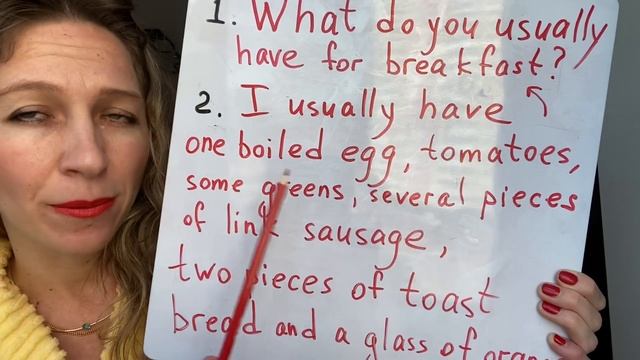 1. What do you usually
have for breakfast?
2. I usually have
one boiled egg, tomatoes,
some greens, several pieces
of link sausage,
two pieces of toast
bread and a glass of